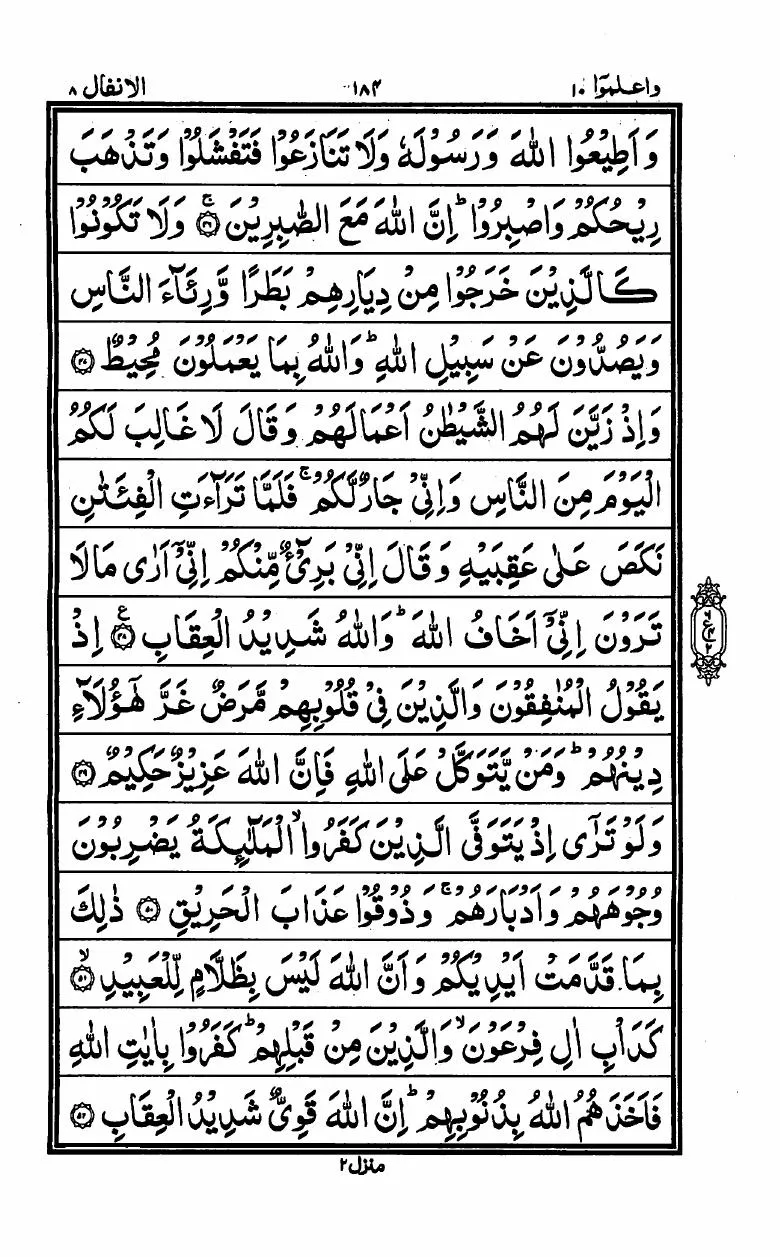 واعلموٓا ١٠ ١٨٤ الانفال ٨
وَاَطِيْعُوا اللّٰهَ وَرَسُوْلَهٗ وَلَا تَنَازَعُوْا فَتَفْشَلُوْا وَتَذْهَبَ
رِيْحُكُمْ وَاصْبِرُوْا ؕ اِنَّ اللّٰهَ مَعَ الصّٰبِرِيْنَ ۚ ﴿٤٦﴾ وَلَا تَكُوْنُوْا
كَالَّذِيْنَ خَرَجُوْا مِنْ دِيَارِهِمْ بَطَرًا وَّرِئَآءَ النَّاسِ
وَيَصُدُّوْنَ عَنْ سَبِيْلِ اللّٰهِ ؕ وَاللّٰهُ بِمَا يَعْمَلُوْنَ مُحِيْطٌ ﴿٤٧﴾
وَاِذْ زَيَّنَ لَهُمُ الشَّيْطٰنُ اَعْمَالَهُمْ وَقَالَ لَا غَالِبَ لَكُمُ
الْيَوْمَ مِنَ النَّاسِ وَاِنِّيْ جَارٌ لَّكُمْ ۚ فَلَمَّا تَرَآءَتِ الْفِئَتٰنِ
نَكَصَ عَلٰى عَقِبَيْهِ وَقَالَ اِنِّيْ بَرِيْٓءٌ مِّنْكُمْ اِنِّيْٓ اَرٰى مَا لَا
تَرَوْنَ اِنِّيْٓ اَخَافُ اللّٰهَ ؕ وَاللّٰهُ شَدِيْدُ الْعِقَابِ ﴿٤٨﴾ ع اِذْ
يَقُوْلُ الْمُنٰفِقُوْنَ وَالَّذِيْنَ فِيْ قُلُوْبِهِمْ مَّرَضٌ غَرَّ هٰٓؤُلَآءِ
دِيْنُهُمْ ؕ وَمَنْ يَّتَوَكَّلْ عَلَى اللّٰهِ فَاِنَّ اللّٰهَ عَزِيْزٌ حَكِيْمٌ ﴿٤٩﴾
وَلَوْ تَرٰٓى اِذْ يَتَوَفَّى الَّذِيْنَ كَفَرُوا ۙ الْمَلٰٓئِكَةُ يَضْرِبُوْنَ
وُجُوْهَهُمْ وَاَدْبَارَهُمْ ۚ وَذُوْقُوْا عَذَابَ الْحَرِيْقِ ﴿٥٠﴾ ذٰلِكَ
بِمَا قَدَّمَتْ اَيْدِيْكُمْ وَاَنَّ اللّٰهَ لَيْسَ بِظَلَّامٍ لِّلْعَبِيْدِ ۙ ﴿٥١﴾
كَدَاْبِ اٰلِ فِرْعَوْنَ ۙ وَالَّذِيْنَ مِنْ قَبْلِهِمْ ؕ كَفَرُوْا بِاٰيٰتِ اللّٰهِ
فَاَخَذَهُمُ اللّٰهُ بِذُنُوْبِهِمْ ؕ اِنَّ اللّٰهَ قَوِيٌّ شَدِيْدُ الْعِقَابِ ﴿٥٢﴾
منزل ٢